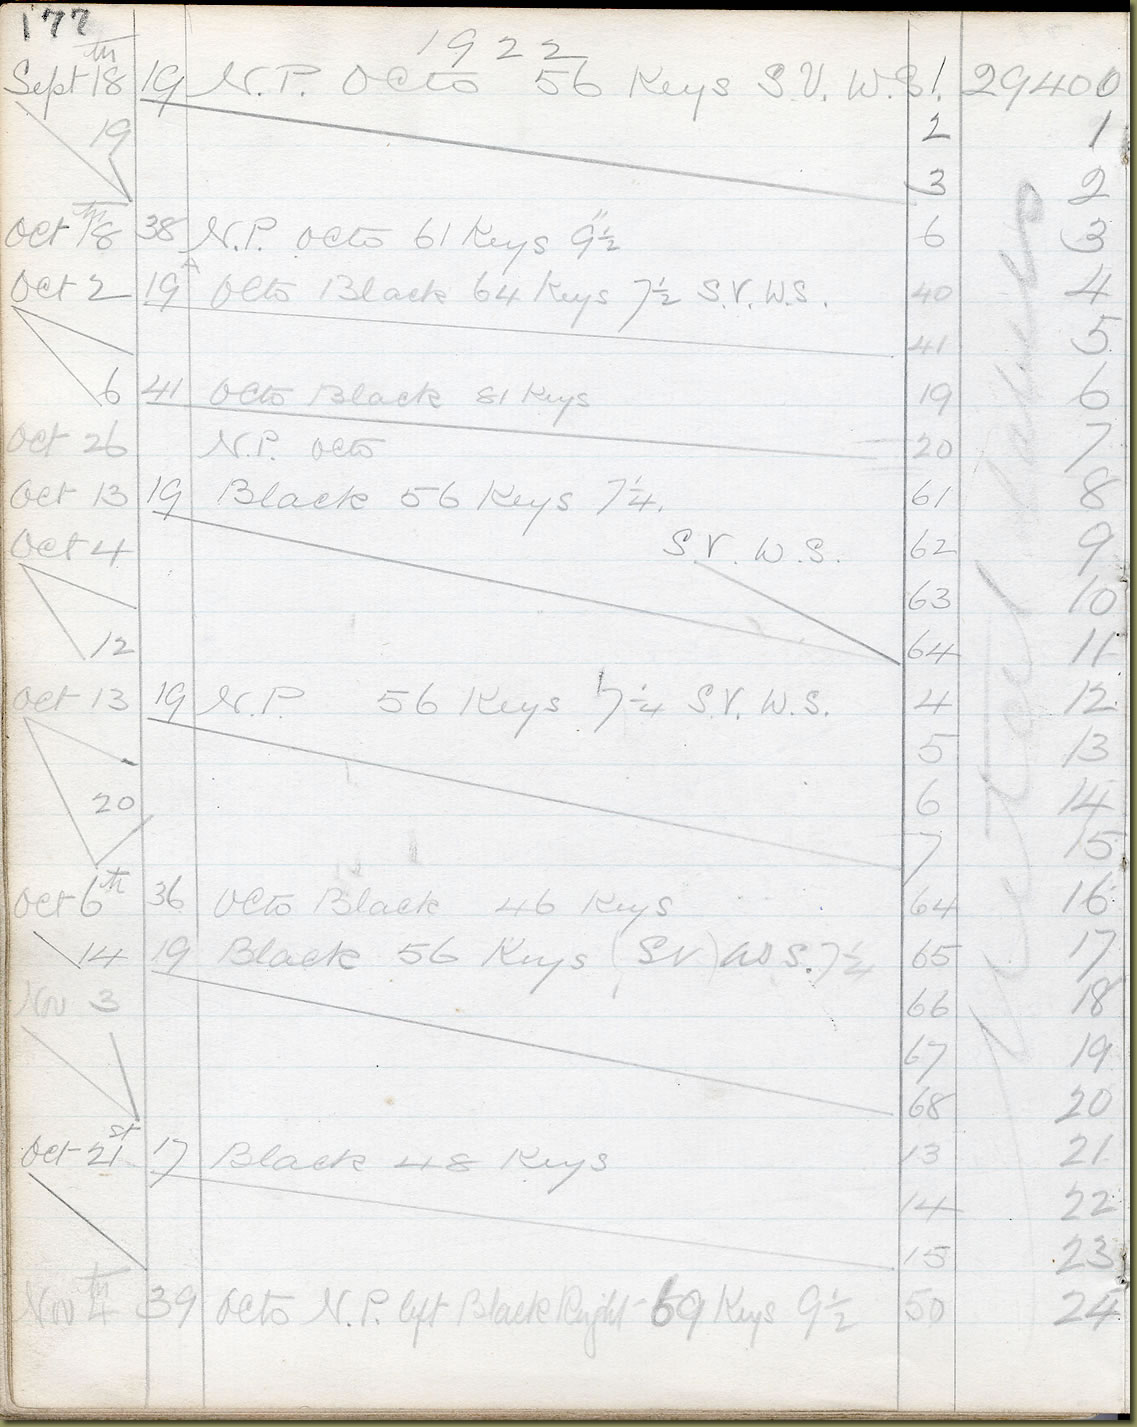 177
1922
Sept 18th 19 N.P. Octo 56 Keys S.V. W.S. 1. 29400
19 2 1
3 2
Oct 18th 38 N.P. Octo 61 Keys 9½" 6 3
Oct 2 19A Octo Black 64 Keys 7½ S.V. W.S. 40 4
41 5
6 41 Octo Black 81 Keys 19 6
Oct 26 N.P. Octo 20 7
Oct 13 19 Black 56 Keys 7¼. 61 8
Oct 4 S.V. W.S. 62 9
63 10
12 64 11
Oct 13 19 N.P. 56 Keys 7¼ S.V. W.S. 4 12
5 13
20 6 14
7 15
Oct 6th 36 Octo Black 46 Keys 64 16
14 19 Black 56 Keys (S.V.) W S. 7¼ 65 17
Nov 3 66 18
67 19
68 20
Oct 21st 17 Black 48 Keys 13 21
14 22
15 23
Nov 4th 39 Octo N.P. left Black Right 69 Keys 9½ 50 24